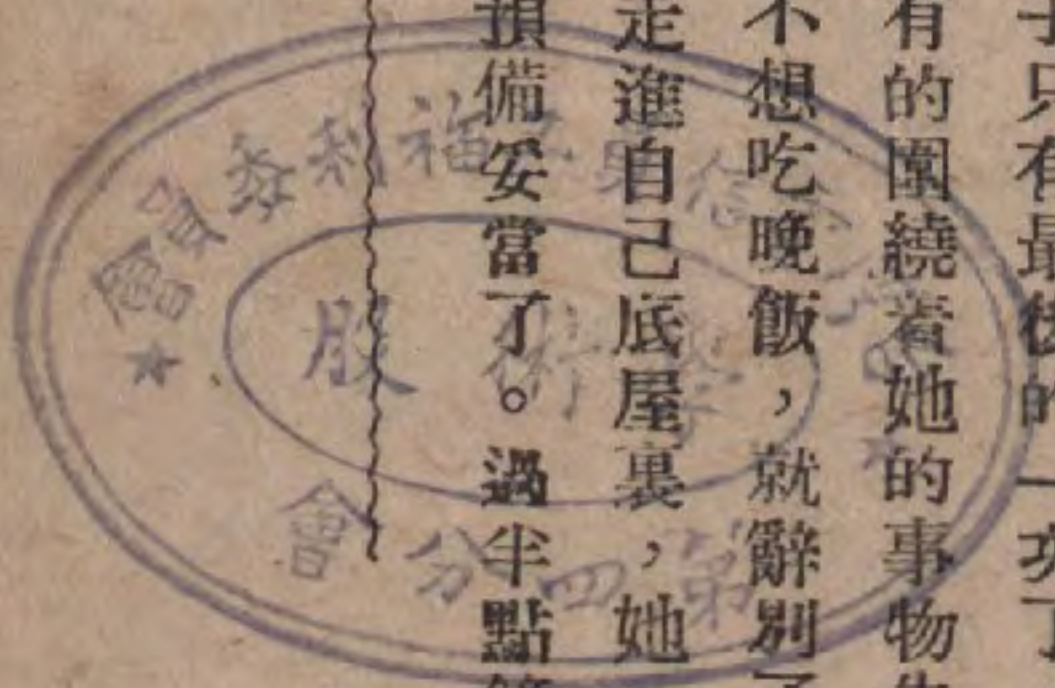 子只有最後的一次了
有的圍繞着她的事物
不想吃晚飯，就辭別了
走進自己底屋裏，她
預備妥當了。過半點
福利委員會
學術股
第四分會